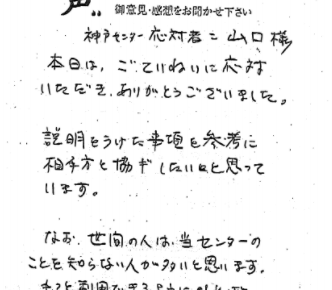 声
御意見・感想をお聞かせ下さい
神戸センター応対者＝山口様
本日は、ごていねいに応対
いただき、ありがとうございました。
説明をうけた事項を参考に
相手方と協ギしたいと思って
います。
なお、世間の人は、当センターの
ことを知らない人が多いと思います。